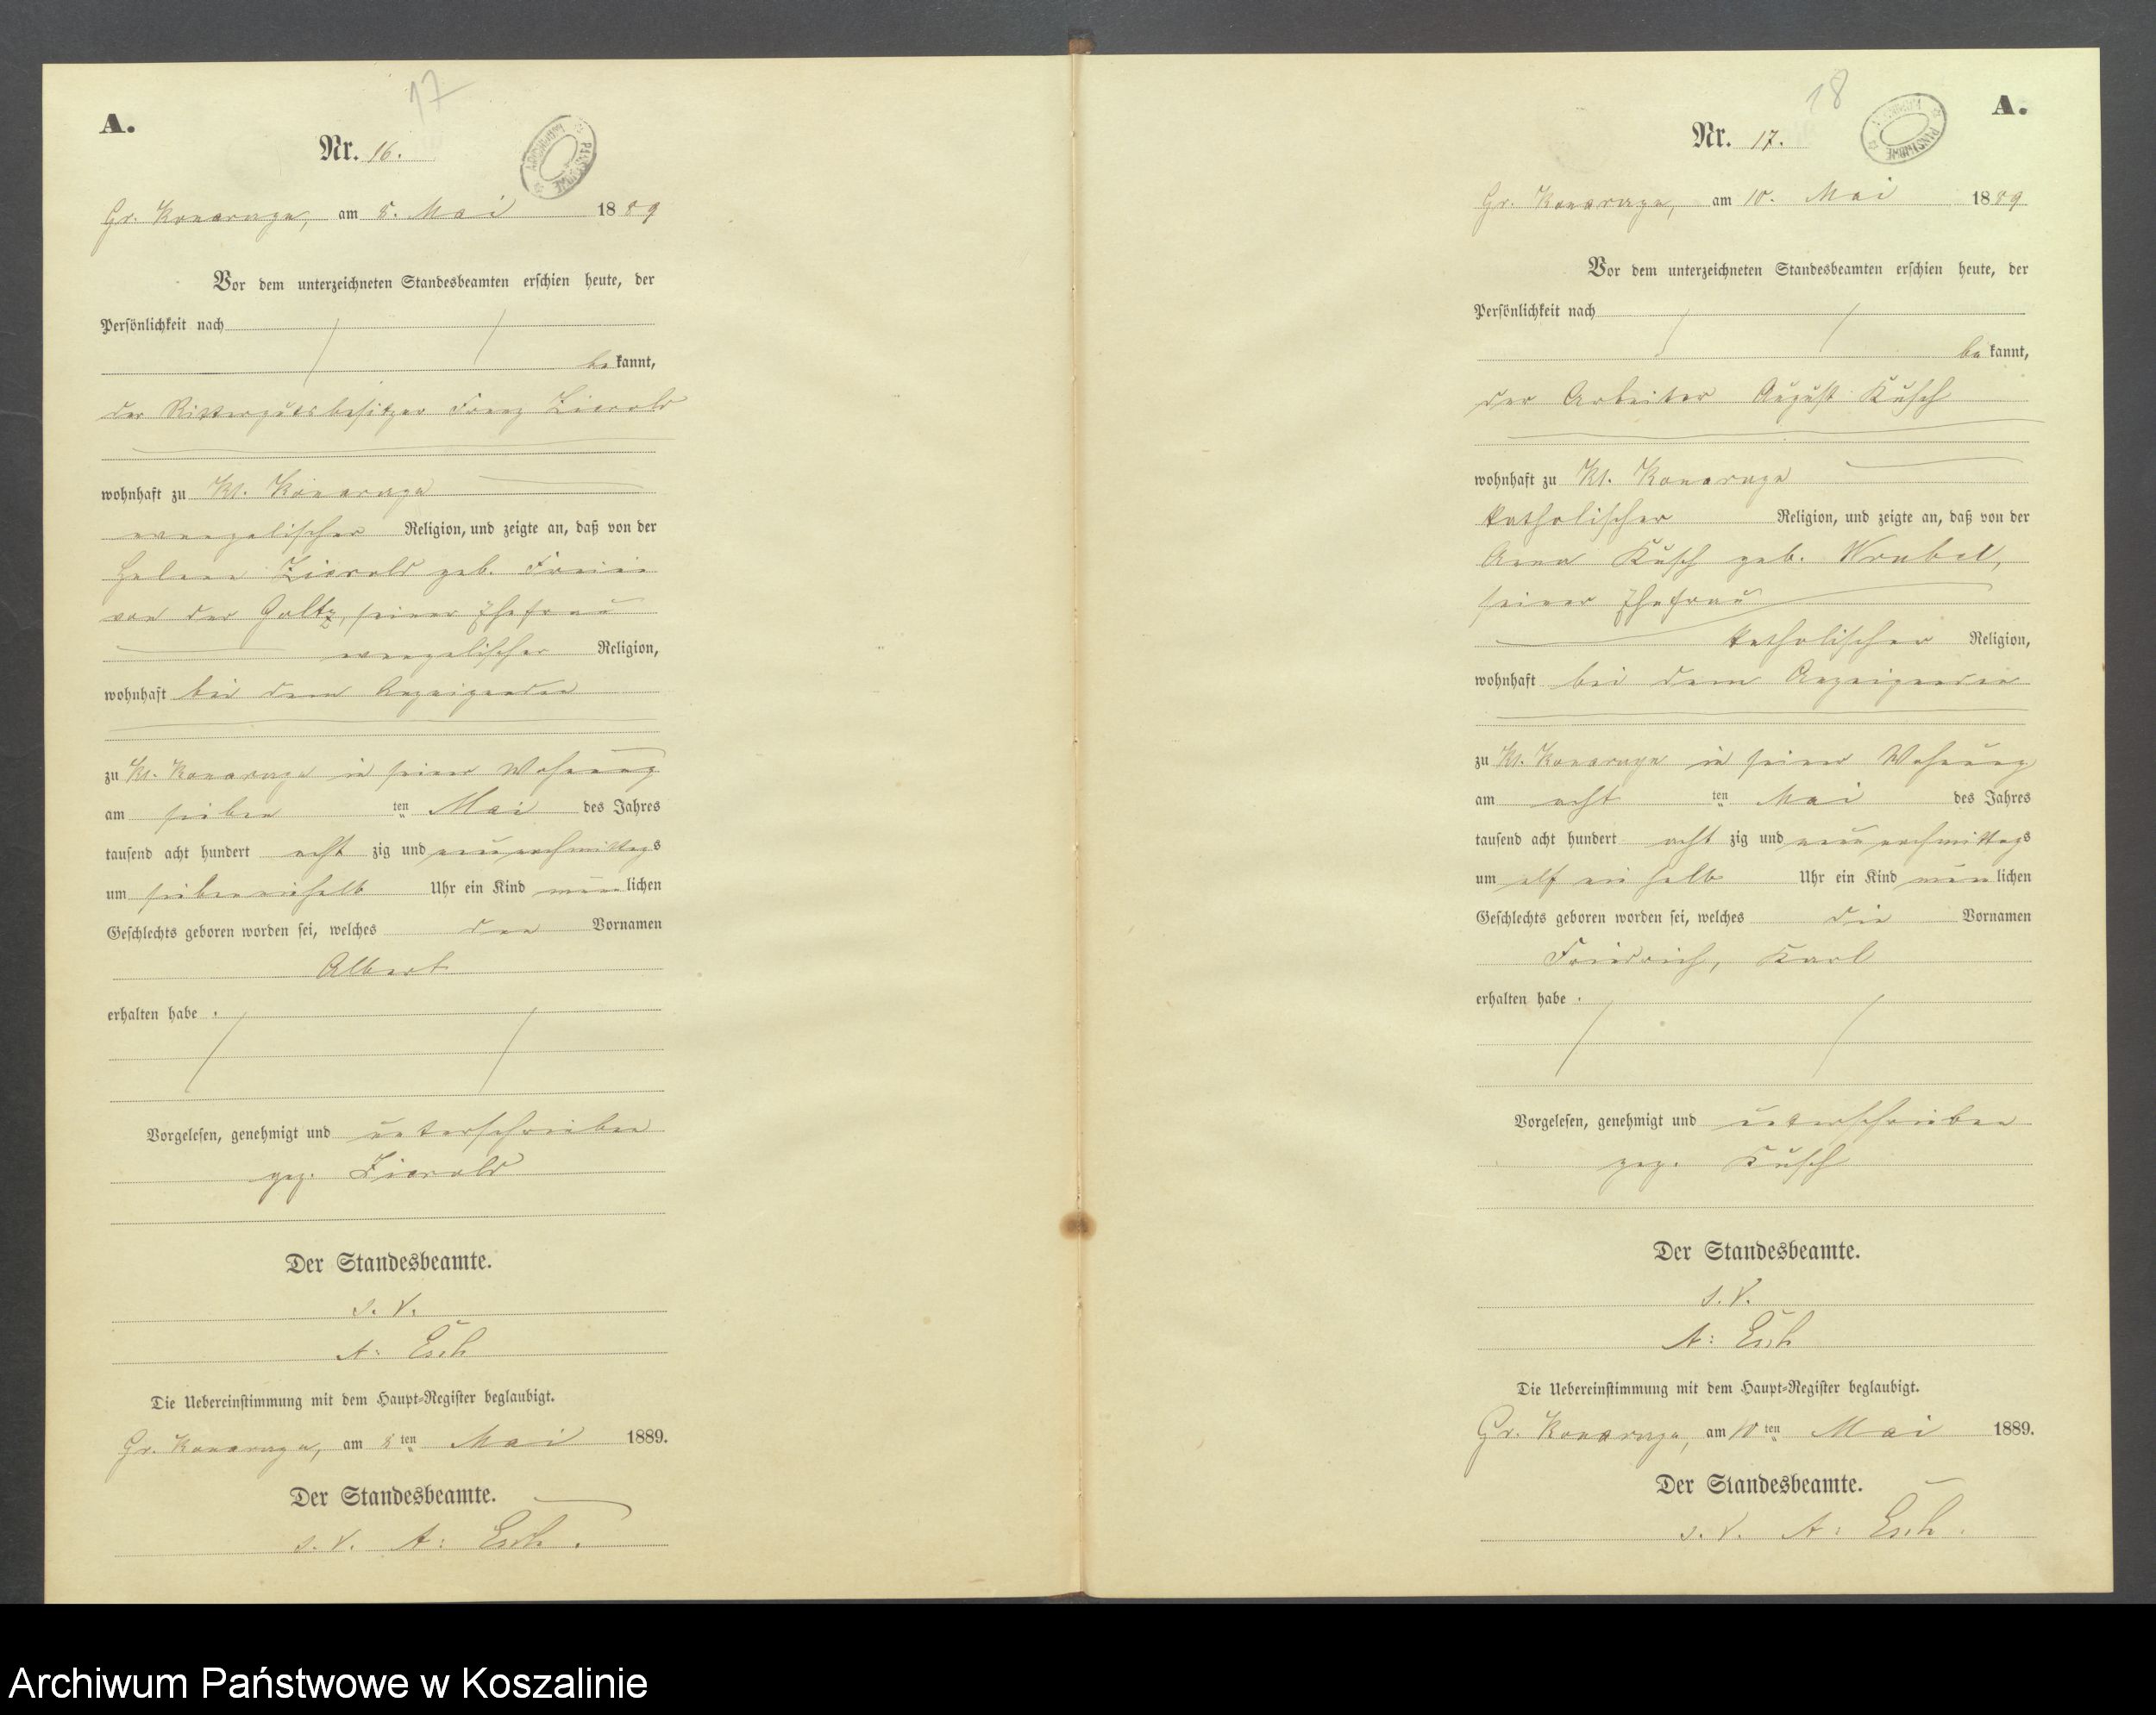 17
A.
Nr. 16.
Gr. Konarczyn, am 8. Mai 1889
Vor dem unterzeichneten Standesbeamten erschien heute, der
Persönlichkeit nach
bekannt,
der Rittergutsbesitzer Franz
wohnhaft zu Kl. Konarczyn
evangelischer Religion, und zeigte an, daß von der
Helene geb. Freiin
von der Goltz, seiner Ehefrau
evangelischer Religion,
wohnhaft bei dem Anzeigenden
zu Kl. Konarczyn in seiner Wohnung
am sieben ten Mai des Jahres
tausend acht hundert acht zig und neun nachmittags
um sieben einhalb Uhr ein Kind männlichen
Geschlechts geboren worden sei, welches den Vornamen
Albert
erhalten habe.
Vorgelesen, genehmigt und unterschrieben
gez.
Der Standesbeamte.
A: Esch
Die Uebereinstimmung mit dem Haupt-Register beglaubigt.
Gr. Konarczyn, am 8ten Mai 1889.
Der Standesbeamte.
A: Esch.
18
A.
Nr. 17.
Gr. Konarczyn, am 10. Mai 1889
Vor dem unterzeichneten Standesbeamten erschien heute, der
Persönlichkeit nach
bekannt,
der Arbeiter August Kusch
wohnhaft zu Kl. Konarczyn
katholischer Religion, und zeigte an, daß von der
Anna Kusch geb. Wrubel,
seiner Ehefrau
katholischer Religion,
wohnhaft bei dem Anzeigenden
zu Kl. Konarczyn in seiner Wohnung
am acht ten Mai des Jahres
tausend acht hundert acht zig und neun nachmittags
um elf ein halb Uhr ein Kind männlichen
Geschlechts geboren worden sei, welches die Vornamen
Friedrich, Karl
erhalten habe.
Vorgelesen, genehmigt und unterschrieben
gez. Kusch
Der Standesbeamte.
A: Esch
Die Uebereinstimmung mit dem Haupt-Register beglaubigt.
Gr. Konarczyn, am 10ten Mai 1889.
Der Standesbeamte.
A: Esch.
Archiwum Państwowe w Koszalinie